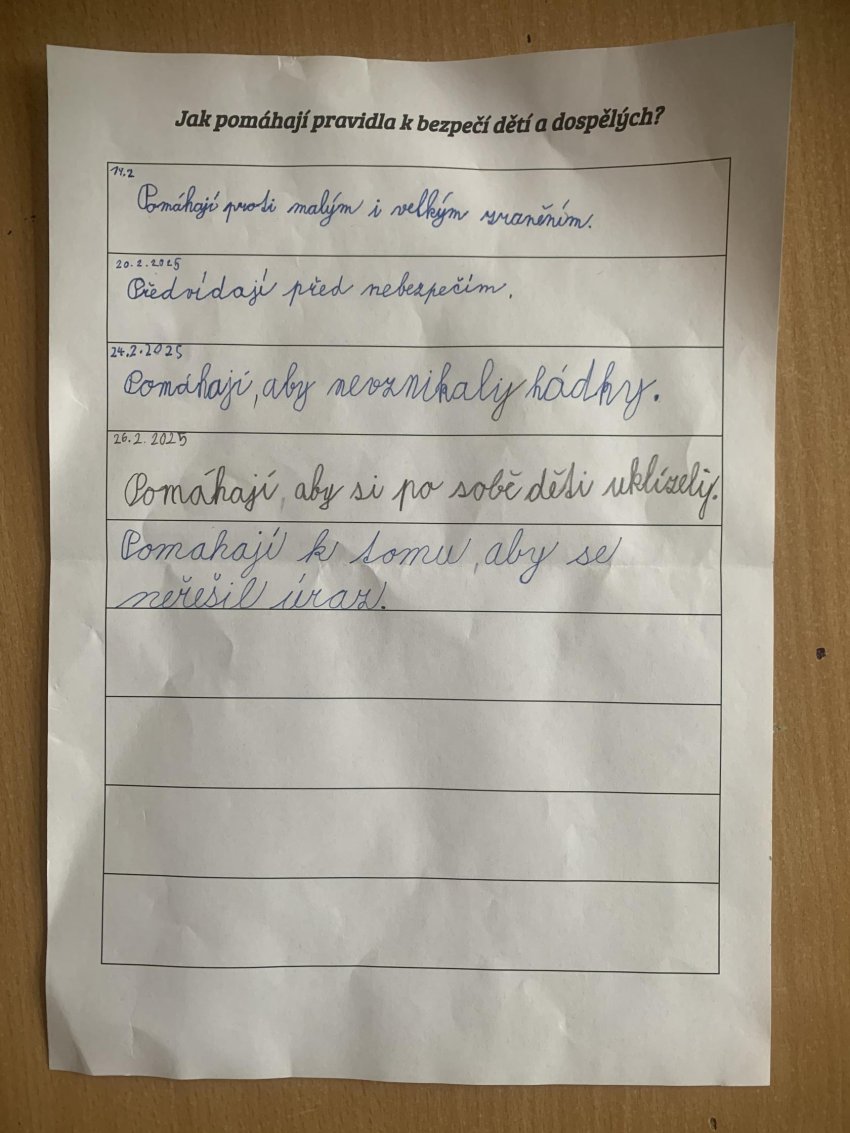 Jak pomáhají pravidla k bezpečí dětí a dospělých?
14.2
Pomáhají proti malým i velkým zraněním.
20.2.2025
Předvídají před nebezpečím.
24.2.2025
Pomáhají, aby nevznikaly hádky.
26.2.2025
Pomáhají, aby si po sobě děti uklízely.
Pomahají k tomu, aby se
neřešil úraz.